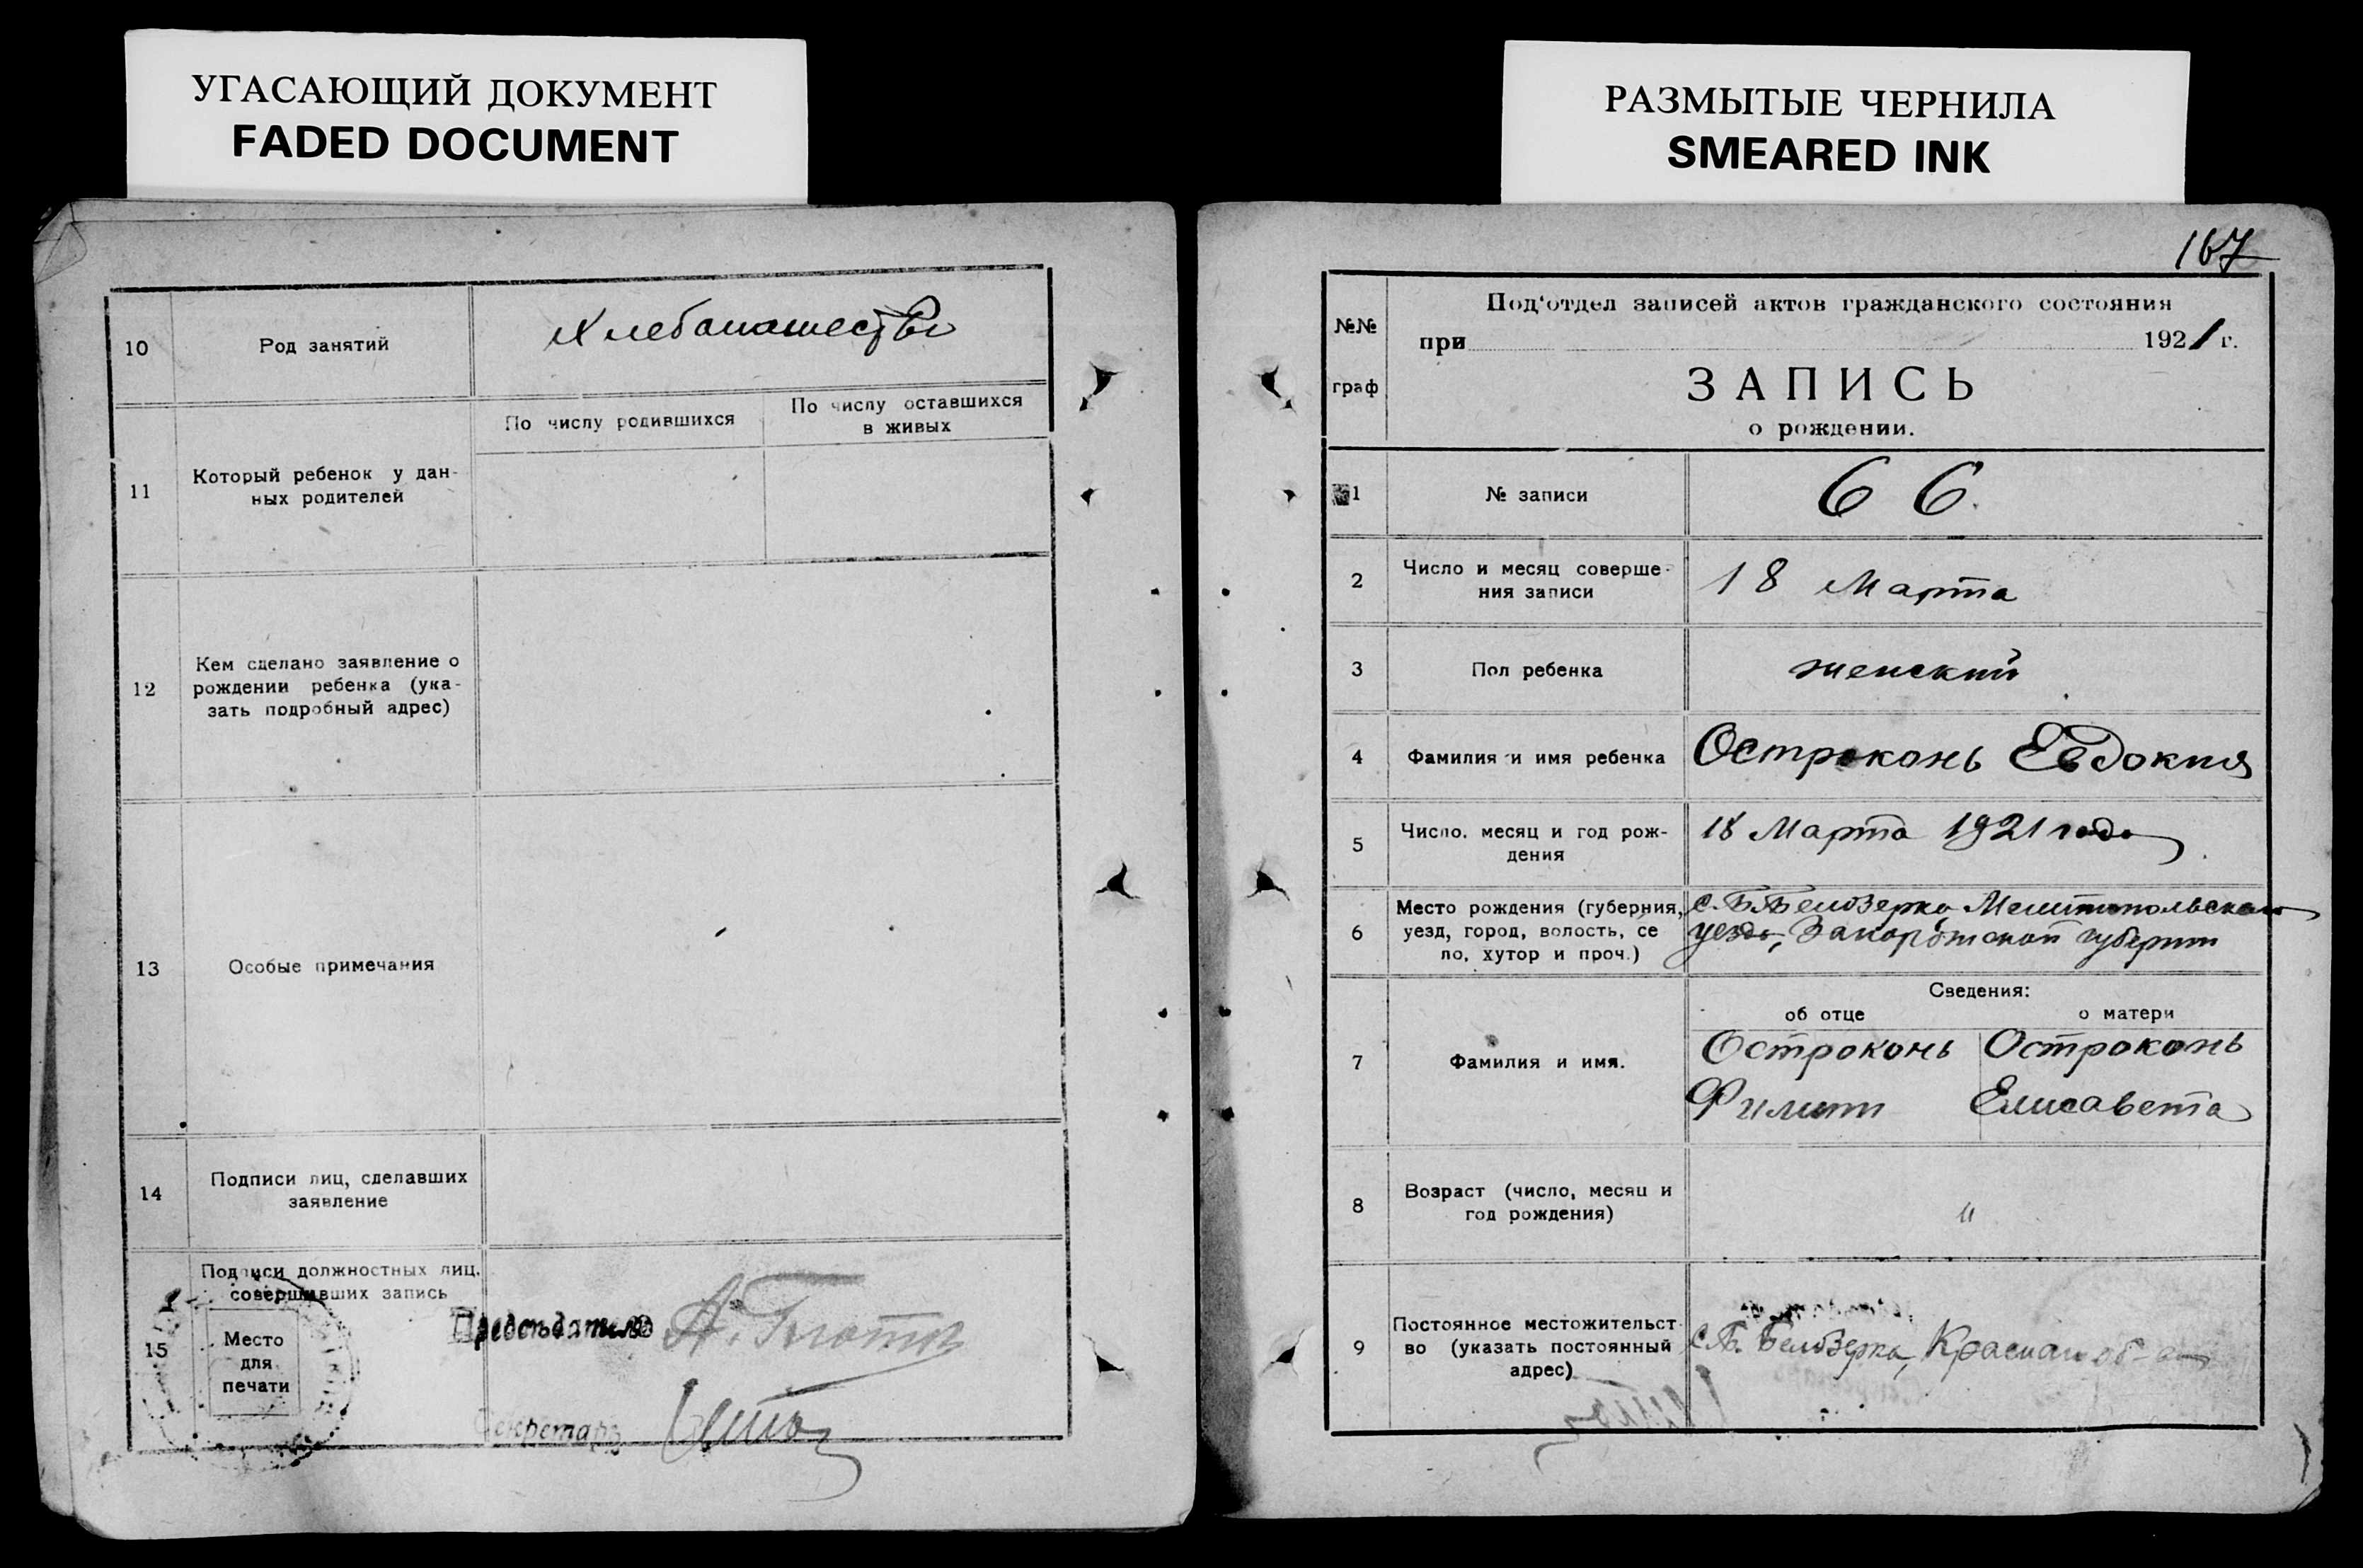 УГАСАЮЩИЙ ДОКУМЕНТ
FADED DOCUMENT
10
Род занятий
Хлебопашество
11
Который ребенок у дан-
ных родителей
По числу родившихся
По числу оставшихся
в живых
12
Кем сделано заявление о
рождении ребенка (ука-
зать подробный адрес)
13
Особые примечания
14
Подписи лиц, сделавших
заявление
15
Подписи должностных лиц,
совершивших запись
Место
для
печати
Председатель А.
Секретарь
РАЗМЫТЫЕ ЧЕРНИЛА
SMEARED INK
167
№№
граф
Под'отдел записей актов гражданского состояния
при 1921 г.
ЗАПИСЬ
о рождении.
1
№ записи
66.
2
Число и месяц соверше-
ния записи
18 Марта
3
Пол ребенка
женский
4
Фамилия и имя ребенка
Остроконь Евдокия
5
Число, месяц и год рож-
дения
18 Марта 1921 года
6
Место рождения (губерния,
уезд, город, волость, се
ло, хутор и проч.)
с. Б. Белозерка Мелитопольского
уезда, Запорожской губернии
Сведения:
об отце
о матери
7
Фамилия и имя.
Остроконь
Филипп
Остроконь
Елисавета
8
Возраст (число, месяц и
год рождения)
"
9
Постоянное местожительст-
во (указать постоянный
адрес)
с. Б. Белозерка,